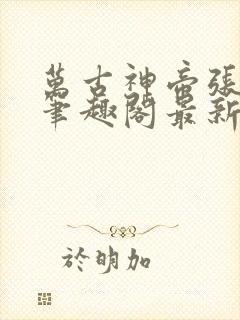 萬古神帝張
筆趣閣最新
於明加